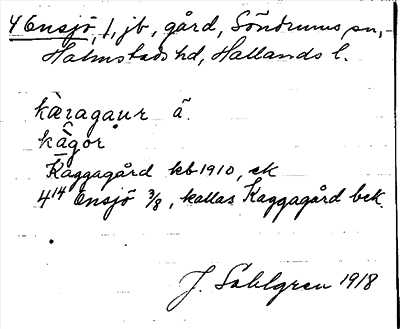 4 Ensjö, 1, jb, gård, Söndrums sn,
Halmstads hd, Hallands l.
kæragaur ä.
kågor
Kaggagård kb 1910, ek
4¹⁴ Ensjö 3/8, kallas Kaggagård bek.
J. Sahlgren 1918